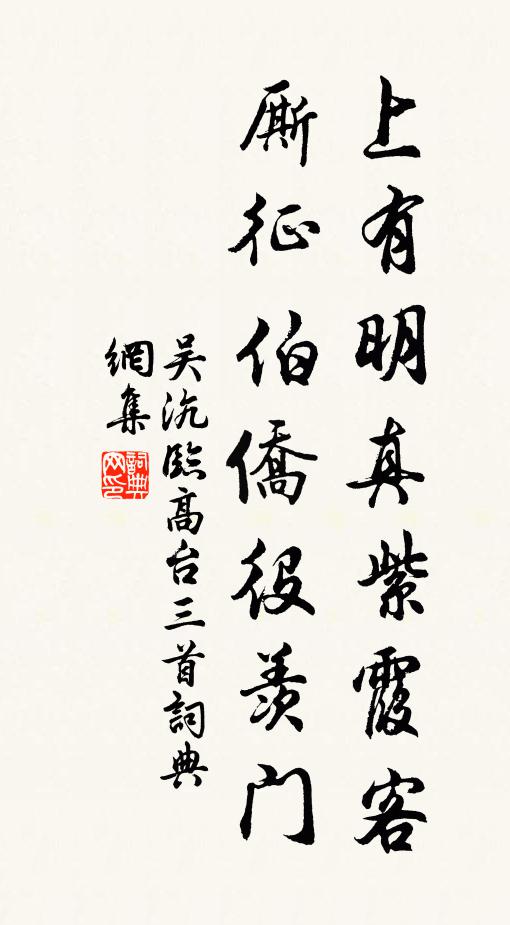 上有明真紫霞客
厮征伯僑役羨門
吴沆臨高台三首詞典
網集
詞典
网印